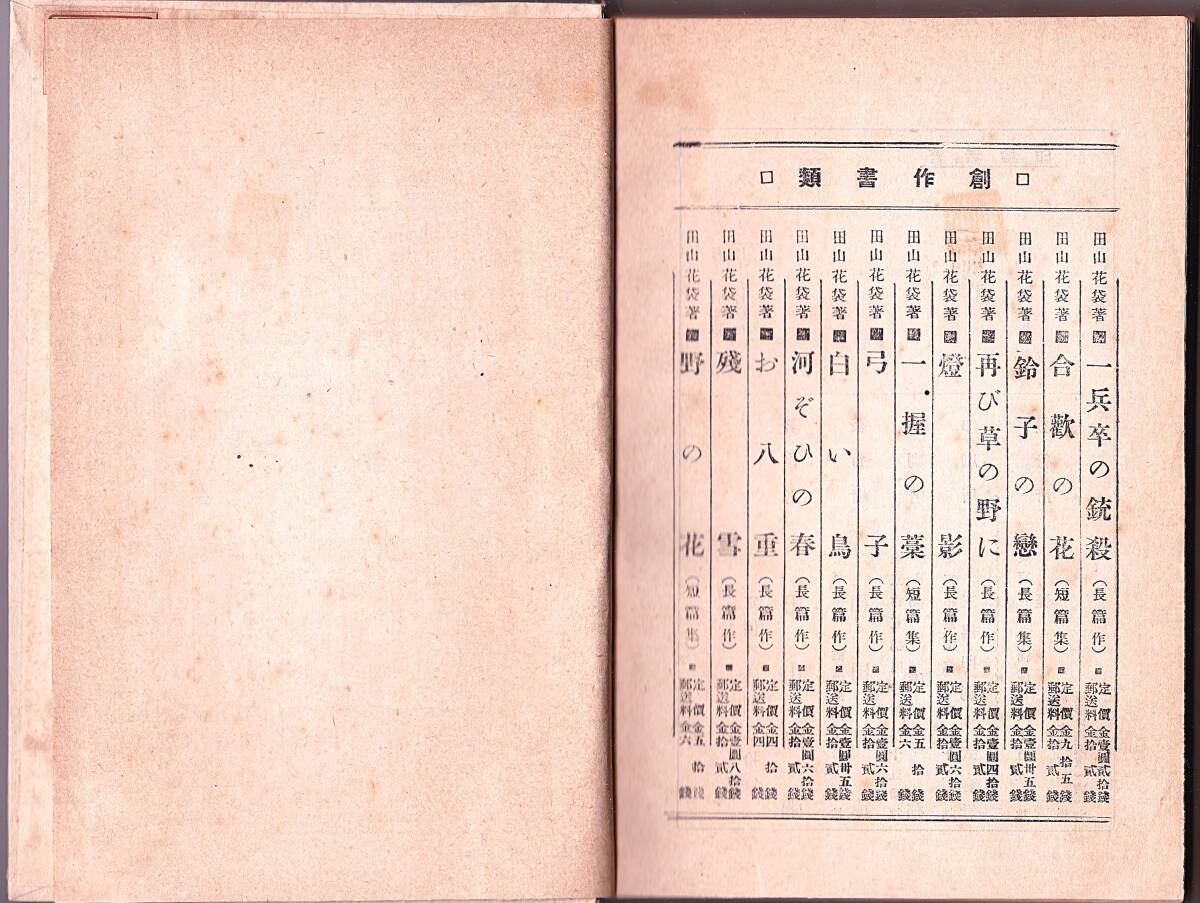 □創作書類□
田山花袋著 一兵卒の銃殺(長篇作) 定價金壹圓貳拾錢
郵送料金拾貳錢
田山花袋著 合歡の花(短篇集) 定價金九拾五錢
郵送料金拾貳錢
田山花袋著 鈴子の戀(長篇集) 定價金壹圓卅五錢
郵送料金拾貳錢
田山花袋著 再び草の野に(長篇作) 定價金壹圓四拾錢
郵送料金拾錢
田山花袋著 燈影(長篇作) 定價金壹圓六拾錢
郵送料金拾貳錢
田山花袋著 一握の藁(短篇集) 定價金五拾錢
郵送料金六錢
田山花袋著 弓子(長篇作) 定價金壹圓六拾錢
郵送料金拾錢
田山花袋著 白い鳥(長篇作) 定價金壹圓卅五錢
郵送料金拾貳錢
田山花袋著 河ぞひの春(長篇作) 定價金壹圓六拾錢
郵送料金拾貳錢
田山花袋著 お八重(長篇作) 定價金四拾錢
郵送料金四錢
田山花袋著 殘雪(長篇作) 定價金壹圓八拾錢
郵送料金拾貳錢
田山花袋著 野の花(短篇集) 定價金五拾錢
郵送料金六錢